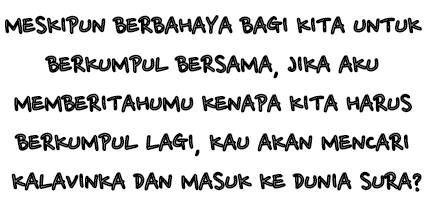 MESKIPUN BERBAHAYA BAGI KITA UNTUK
BERKUMPUL BERSAMA, JIKA AKU
MEMBERITAHUMU KENAPA KITA HARUS
BERKUMPUL LAGI, KAU AKAN MENCARI
KALAVINKA DAN MASUK KE DUNIA SURA?